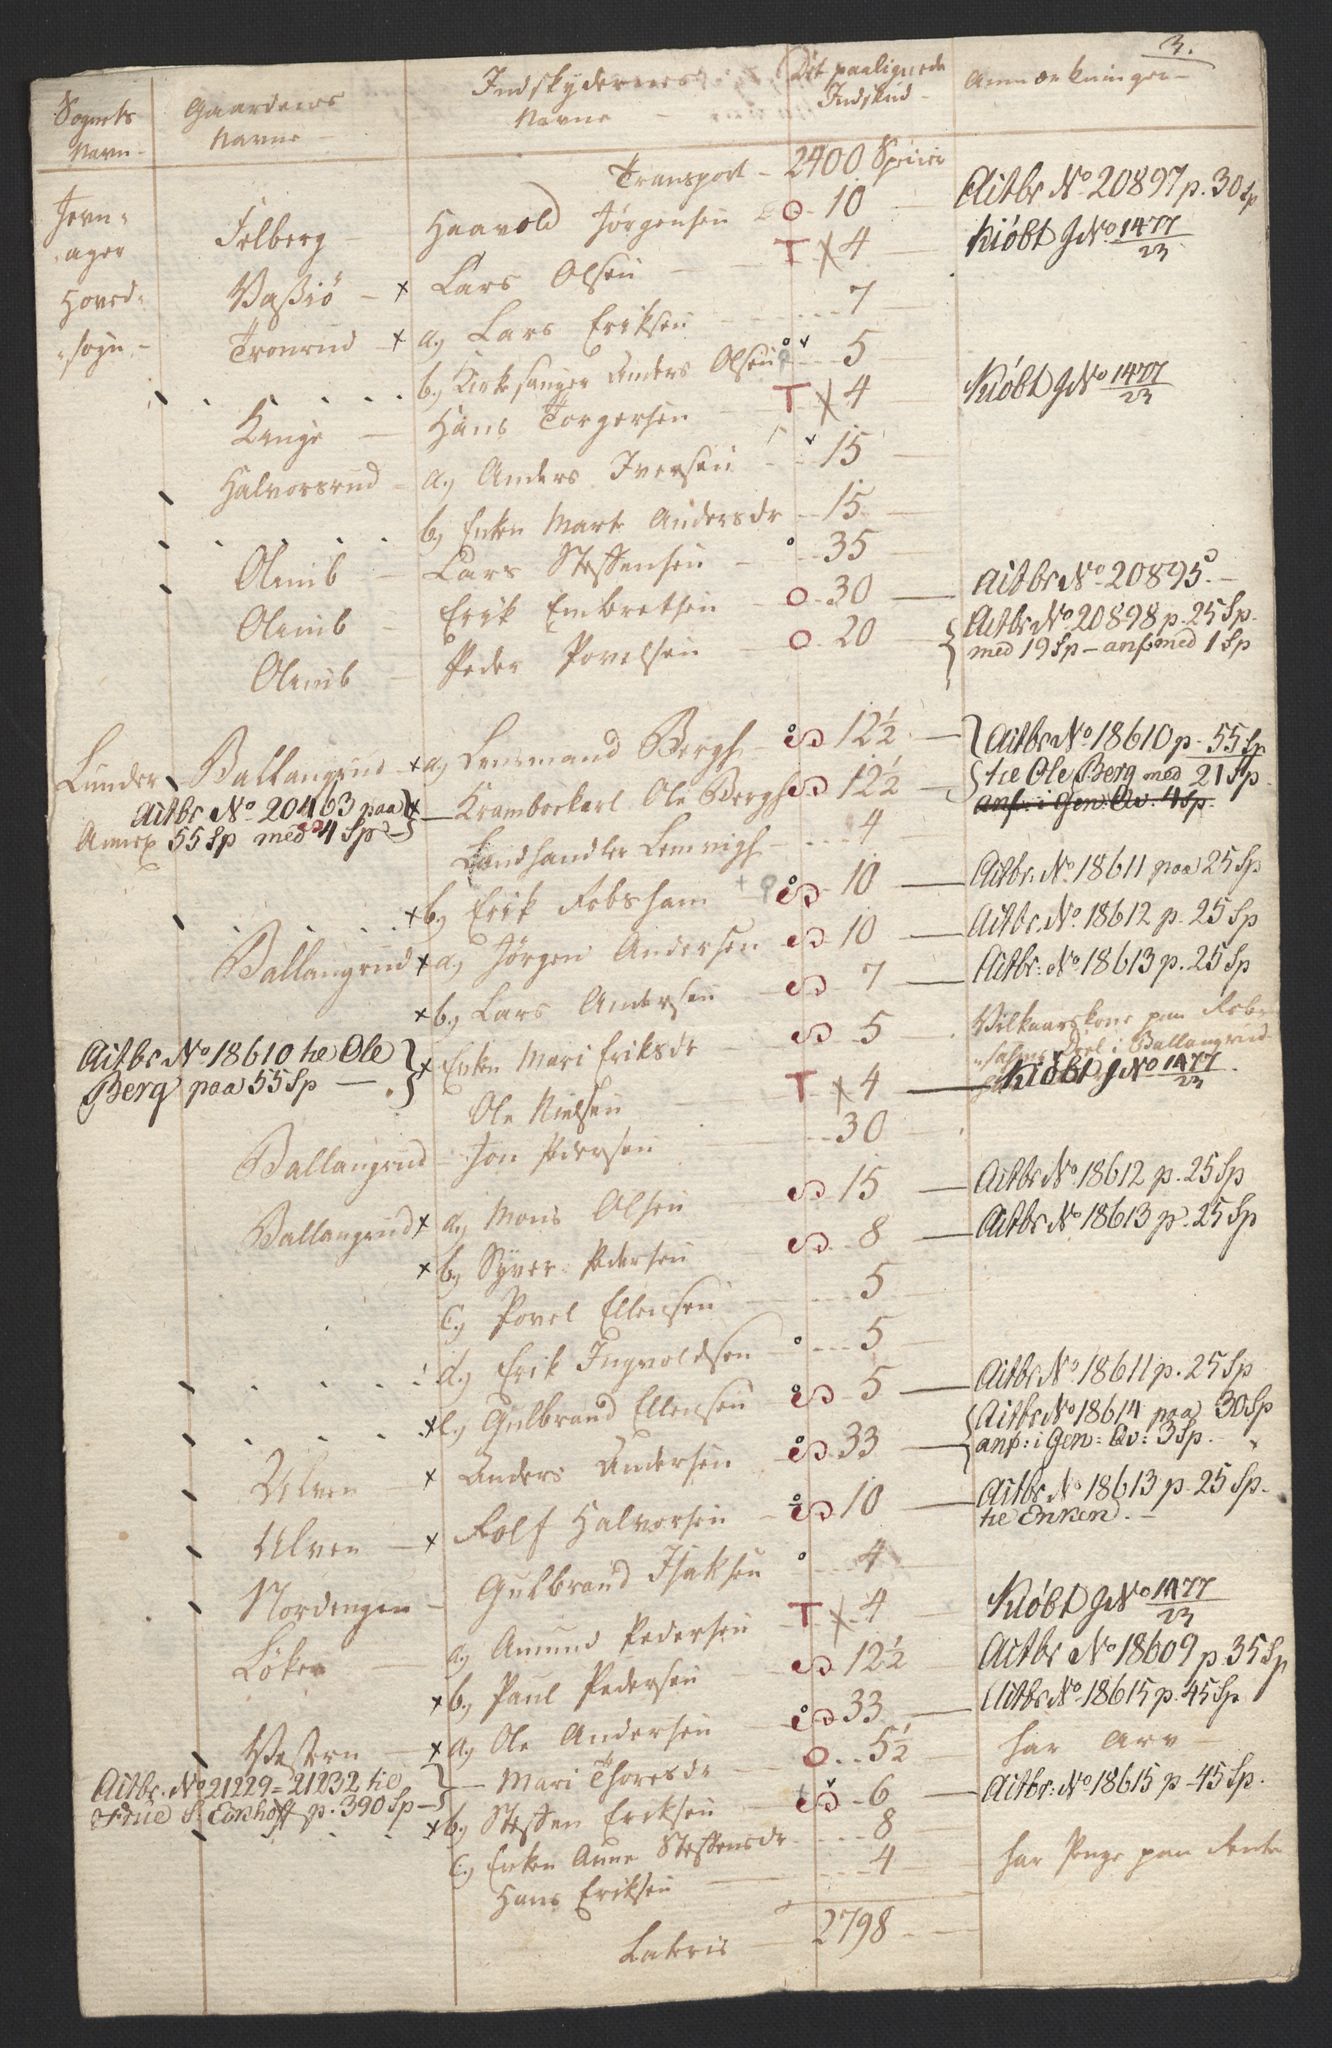 3.
Sognets Navn - Gaardenes Navne - Indskydernes Navne - Det paalignede Indskud - Anmærkninger -
Transport - 2400 Specier
Jevn= Felberg - Haavold Jørgensen O 10 Actbr No 20897 p. 30 Sp
ager Vaßiö - x Lars Olsen T X 4 Kiöbt J No 1477/23
Hoved= Tronrud - x a, Lars Eriksen 7
=sogn - b, Kirkesanger Anders Olsen 5
Kinge - Hans Torgersen T X 4 Kiöbt J No 1477/23
Halvorsrud - a, Anders Iversen 15
b, Enken Marte Andersdr 15
Olmib - Lars Steffensen 35
Olmib - Erik Embretsen O 30 - Actbr No 20895. -
Olmib - Peder Povelsen O 20 Actbr No 20898 p. 25 Sp.
med 19 Sp - anf med 1 Sp
Lunder Ballangrud - x a, Lensmand Bergh 12½ Actbr No 18610 p. 55 Sp
Actbr No 20463 paa x Krambodkarl Ole Bergh 12½ tie Ole Berg med 21 Sp.
Annex 55 Sp med 4 Sp - anf: i Gen: Qv: 4 Sp.
Landhandler Lemvigh 4
x b, Erik Robsham 10 - Actbr: No 18611 paa 25 Sp
Ballangrud x a, Jørgen Andersen 10 - Actbr No 18612 p. 25 Sp
x b, Lars Andersen 7 - Actbr: No 18613 p. 25 Sp
Actbr No 18610 tie Ole x Enken Mari Eriksdr 5 Vilkaarskone paa Rob=
Berg paa 55 Sp - =sahms Deel i Ballangrud
Ole Nielsen T X 4 - Kiöbt J No 1477/23.
Ballangrud - Jon Pedersen 30
Ballangrud x a, Mons Olsen 15 - Actbr No 18612 p. 25 Sp
x b, Syver Pedersen 8 - Actbr No 18613 p. 25 Sp
c, Povel Ellensen 5
d, Erik Ingvoldsen 5
x e, Gulbrand Ellensen 5 - Actbr No 18611 p. 25 Sp
Ulven x Anders Andersen 33 Actbr No 18614 paa 30 Sp
anf: i Gen: Qv: 3 Sp.
Ulven - x Rolf Halvorsen 10 - Actbr No 18613 p. 25 Sp.
tie Enken. -
Nordengen - Gulbrand Isaksen 4
Løken - a, Amund Pedersen T X 4 Kiöbt J No 1477/23
x b, Paul Pedersen 12½ Actbr No 18609 p. 35 Sp
Vestern - x a, Ole Andersen 33 Actbr No 18615 p. 45 Sp
Actbr. No 21229 = 21232 tie - Mari Thoresdr O 5½ har Arv -
Frue S. p. 390 Sp - x b, Steffen Eriksen 6 - Actbr: No 18615 p - 45 Sp.
c, Enken Anne Steffensdr 8
Hans Eriksen 4 har Penge paa Rente
Lateris 2798